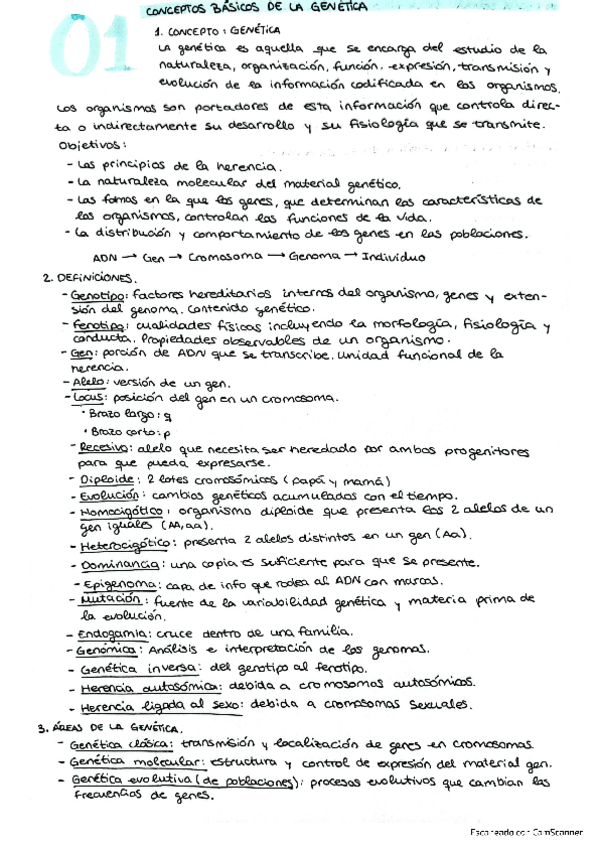 01
CONCEPTOS BÁSICOS DE LA GENÉTICA
1. CONCEPTO: GENÉTICA
La genética es aquella que se encarga del estudio de la
naturaleza, organización, función, expresión, transmisión y
evolución de la información codificada en los organismos.
Los organismos son portadores de esta información que controla direc-
ta o indirectamente su desarrollo y su fisiología que se transmite.
Objetivos:
- Los principios de la herencia.
- La naturaleza molecular del material genético.
- Las formas en la que los genes, que determinan las características de
los organismos, controlan las funciones de la vida.
- La distribución y comportamiento de los genes en las poblaciones.
ADN → Gen → Cromosoma → Genoma → Individuo
2. DEFINICIONES.
- Genotipo: factores hereditarios internos del organismo, genes y exten-
sión del genoma. Contenido genético.
- Fenotipo: cualidades físicas incluyendo la morfología, fisiología y
conducta. Propiedades observables de un organismo.
- Gen: porción de ADN que se transcribe. Unidad funcional de la
herencia.
- Alelo: versión de un gen.
- Locus: posición del gen en un cromosoma.
· Brazo largo: q
· Brazo corto: p
- Recesivo: alelo que necesita ser heredado por ambos progenitores
para que pueda expresarse.
- Diploide: 2 lotes cromosómicos (papá y mamá)
- Evolución: cambios genéticos acumulados con el tiempo.
- Homocigótico: organismo diploide que presenta los 2 alelos de un
gen iguales (AA, aa).
- Heterocigótico: presenta 2 alelos distintos en un gen (Aa).
- Dominancia: una copia es suficiente para que se presente.
- Epigenoma: capa de info que rodea al ADN con marcas.
- Mutación: fuente de la variabilidad genética y materia prima de
la evolución.
- Endogamia: cruce dentro de una familia.
- Genómica: Análisis e interpretación de los genomas.
- Genética inversa: del genotipo al fenotipo.
- Herencia autosómica: debida a cromosomas autosómicos.
- Herencia ligada al sexo: debida a cromosomas sexuales.
3. ÁREAS DE LA GENÉTICA.
- Genética clásica: transmisión y localización de genes en cromosomas.
- Genética molecular: estructura y control de expresión del material gen.
- Genética evolutiva (de poblaciones): procesos evolutivos que cambian las
frecuencias de genes.
Escaneado con CamScanner